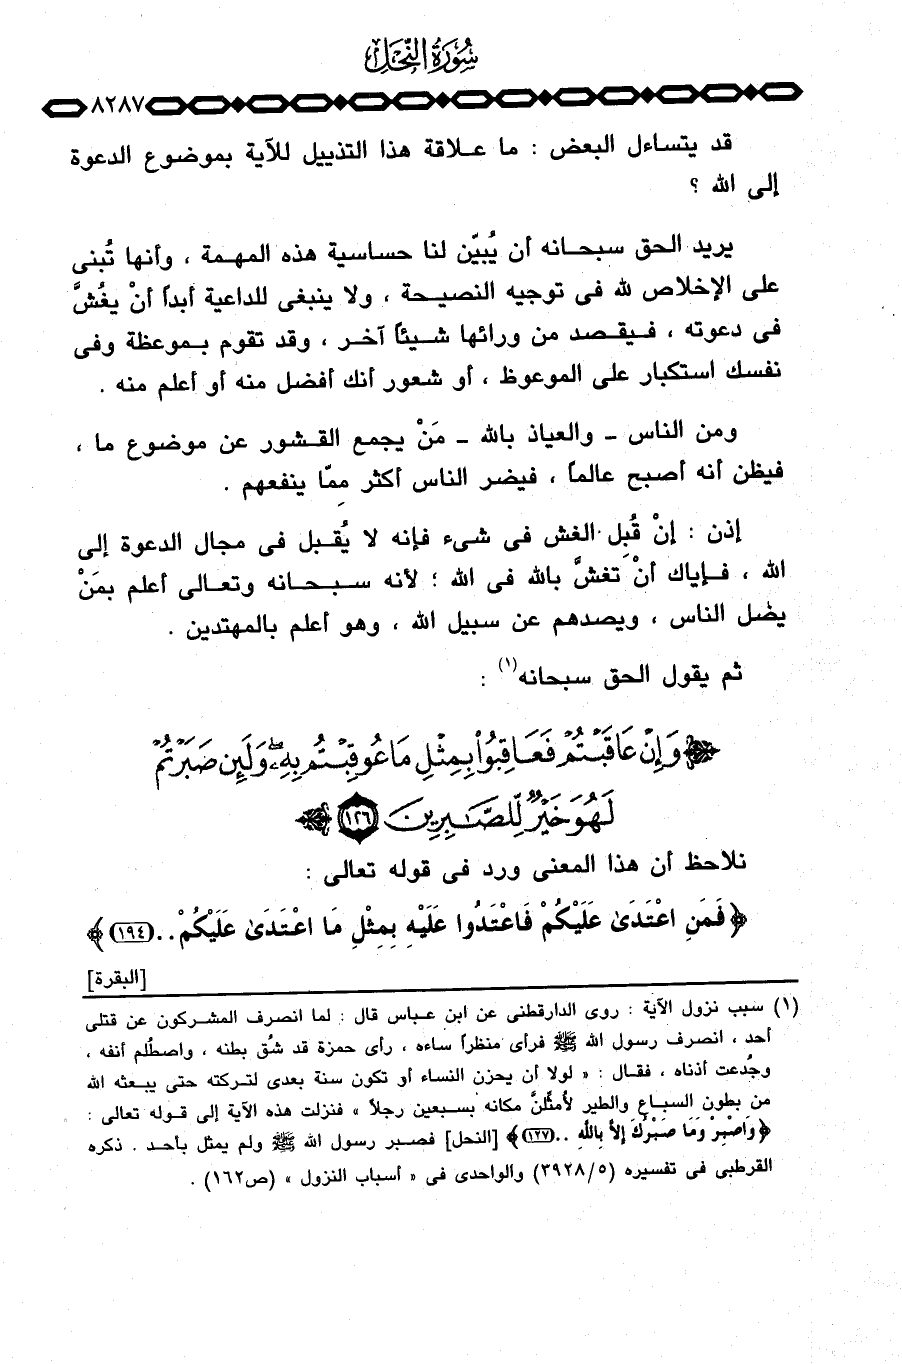 سُورَةُ النَّحْلِ
٨٢٨٧
قد يتساءل البعض : ما علاقة هذا التذييل للآية بموضوع الدعوة
إلى الله ؟
يريد الحق سبحانه أن يُبيّن لنا حساسية هذه المهمة ، وأنها تُبنى
على الإخلاص لله فى توجيه النصيحة ، ولا ينبغى للداعية أبداً أنْ يغُشَّ
فى دعوته ، فيقصد من ورائها شيئاً آخر ، وقد تقوم بموعظة وفى
نفسك استكبار على الموعوظ ، أو شعور أنك أفضل منه أو أعلم منه .
ومن الناس - والعياذ بالله - مَنْ يجمع القشور عن موضوع ما ،
فيظن أنه أصبح عالماً ، فيضر الناس أكثر مِمّا ينفعهم .
إذن : إنْ قُبِل الغش فى شىء فإنه لا يُقبل فى مجال الدعوة إلى
الله ، فإياك أنْ تغشَّ بالله فى الله ؛ لأنه سبحانه وتعالى أعلم بمَنْ
يضل الناس ، ويصدهم عن سبيل الله ، وهو أعلم بالمهتدين .
ثم يقول الحق سبحانه(١) :
وَإِنْ عَاقَبْتُمْ فَعَاقِبُوا بِمِثْلِ مَا عُوقِبْتُم بِهِۦ وَلَئِن صَبَرْتُمْ
لَهُوَ خَيْرٌ لِّلصَّٰبِرِينَ ١٢٦
نلاحظ أن هذا المعنى ورد فى قوله تعالى :
﴿فَمَنِ اعْتَدَىٰ عَلَيْكُمْ فَاعْتَدُوا عَلَيْهِ بِمِثْلِ مَا اعْتَدَىٰ عَلَيْكُمْ .. (١٩٤)﴾
[البقرة]
(١) سبب نزول الآية : روى الدارقطنى عن ابن عباس قال : لما انصرف المشركون عن قتلى
أحد ، انصرف رسول الله ﷺ فرأى منظراً ساءه ، رأى حمزة قد شُق بطنه ، واصطُلم أنفه ،
وجُدعت أذناه ، فقال : « لولا أن يحزن النساء أو تكون سنة بعدى لتركته حتى يبعثه الله
من بطون السباع والطير لأمثلنَّ مكانه بسبعين رجلاً » فنزلت هذه الآية إلى قوله تعالى :
﴿وَاصْبِرْ وَمَا صَبْرُكَ إِلاَّ بِاللَّهِ .. (١٢٧)﴾ [النحل] فصبر رسول الله ﷺ ولم يمثل بأحد . ذكره
القرطبى فى تفسيره (٣٩٢٨/٥) والواحدى فى « أسباب النزول » (ص١٦٢) .